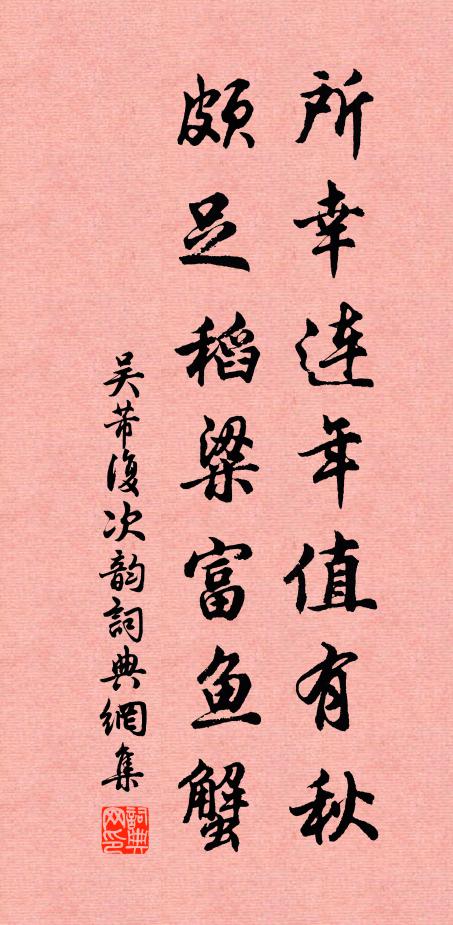 所幸连年值有秋
颇足稻粱富鱼蟹
吴芾復次韵詞典網集
詞典网印